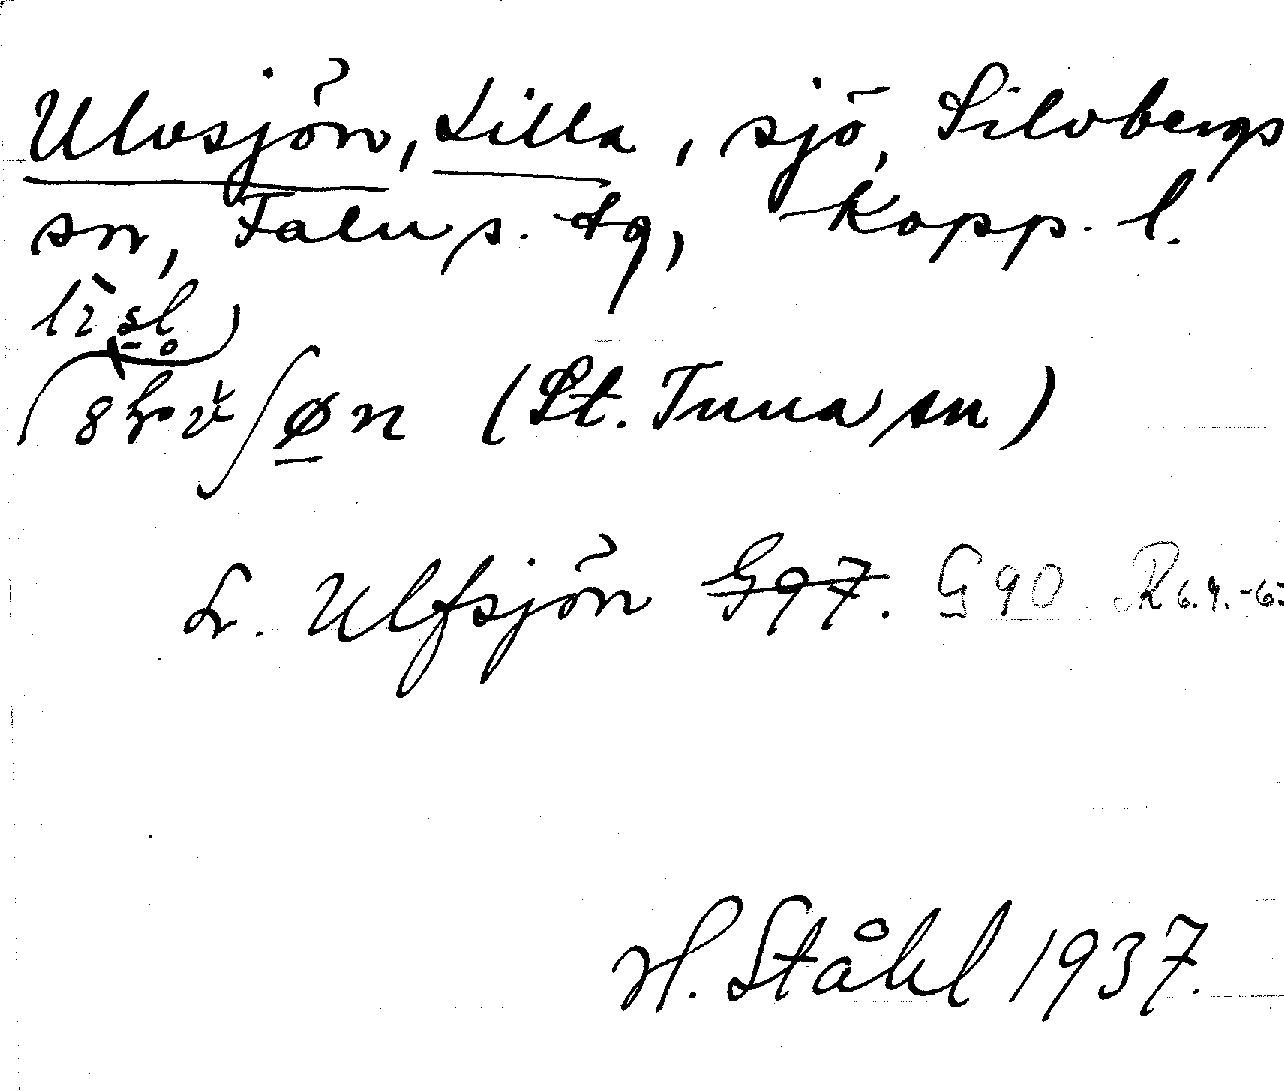 Ulvsjön, Lilla, sjö, Silvbergs
sn, Falu s. tg, Kopp. l.
(St. Tuna sn)
L. Ulfsjön G97. G90 R 6.4.-6:
H. Ståhl 1937.